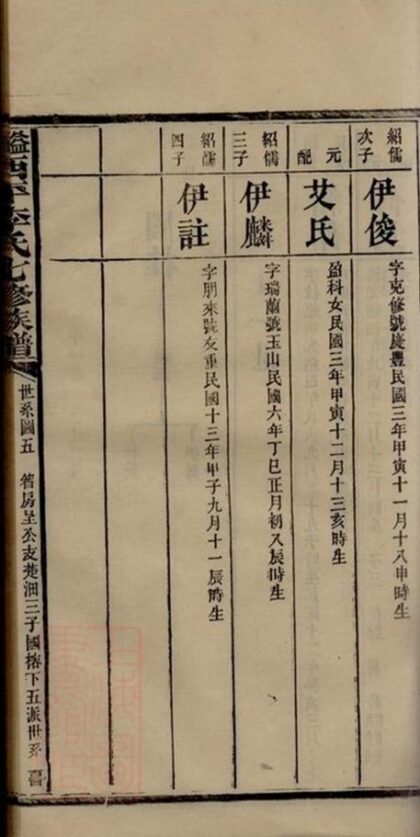 紹儒次子
伊俊
字克修號慶豐民國三年甲寅十一月十八申時生
元配
艾氏
盈科女民國三年甲寅十二月十三亥時生
紹儒三子
伊麟
字瑞蘭號玉山民國六年丁巳正月初八辰時生
紹儒四子
伊註
字朋來號友重民國十三年甲子九月十一辰時生
氏七修族譜
世系圖五
公支楚浦三子國榕下五派世系